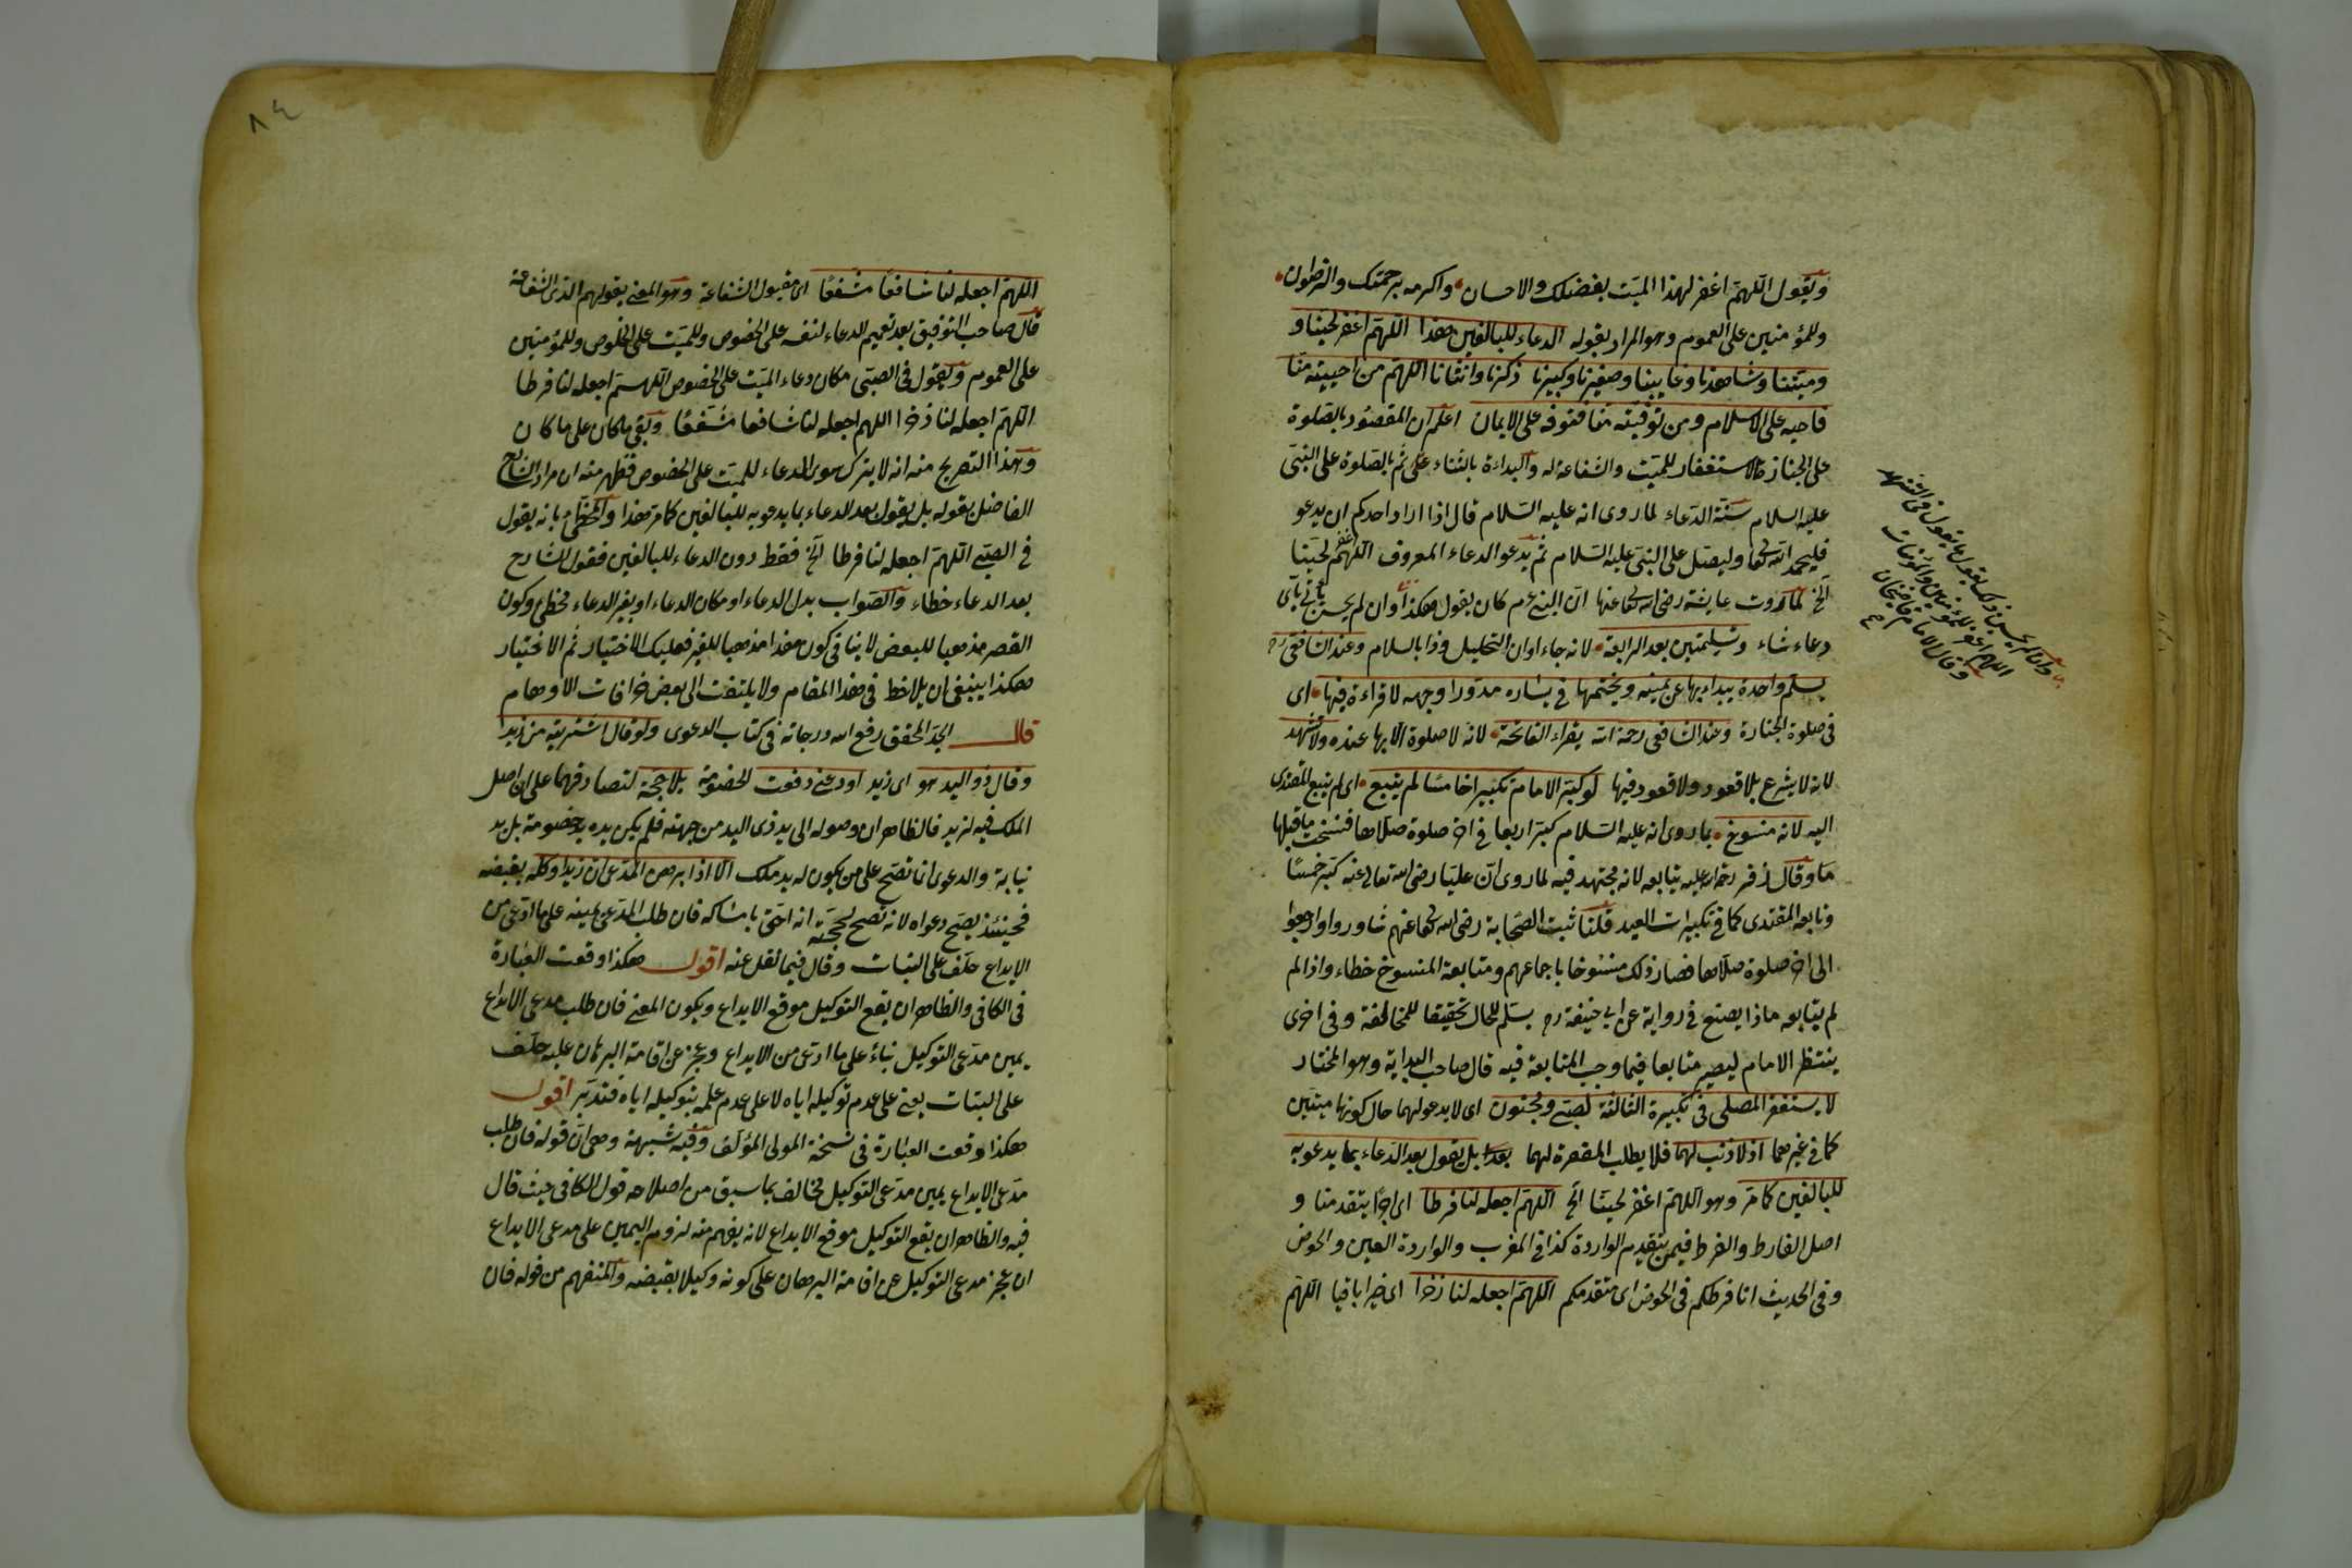 ويقول اللهم اغفر لهذا الميت بفضلك والاحسان واكرمه برحمتك والرضوان
وللمؤمنين على العموم وهو المراد بقوله الدعاء للبالغين هذا اللهم اغفر لحينا و
وميتنا وشاهدنا وغايبنا وصغيرنا وكبيرنا ذكرنا وانثانا اللهم من احييته منا
فاحيه على الاسلام ومن توفيته منا فتوفه على الايمان اعلم ان المقصود بالصلوة
على الجنازة الاستغفار للميت والشفاعة له والبداءة بالثناء ثم بالصلوة على النبى
عليه السلام سنة الدعاء لما روى انه عليه السلام قال اذا اراد احدكم ان يدعو
فليحمد الله تعا وليصل على النبى عليه السلام ثم يدعو الدعاء المعروف اللهم اغفر لحينا
الخ لما روت عايشة رضى الله تعا عنها ان النبى عم كان يقول هكذا وان لم يحسن ياتى باى
دعاء شاء وتسليمتين بعد الرابعة لانه جاء اوان التحليل وذا بالسلام وعند الشافعى رح
يسلم واحدة يبداء بها عن يمينه ويختمها فى يساره مدورا وجهه لا قراءة فيها اى
فى صلوة الجنازة وعند الشافعى رحمة الله يقراء الفاتحة لانه لا صلوة الا بها عنده ولا تشهد
لانه لا يشرع بلا قعود ولا قعود فيها لو كبر الامام تكبيرا خامسا لم يتبع اى لم يتبع المقتدى
اليه لانه منسوخ بما روى انه عليه السلام كبر اربعا فى اخر صلوة صلاها فنسخت ما قبلها
وقال زفر رحمة الله عليه يتابعه لانه مجتهد فيه لما روى ان عليا رضى الله تعالى عنه كبر خمسا
وتابعه المقتدى كما فى تكبيرات العيد قلنا ثبت الصحابة رضى الله تعا عنهم شاوروا وارجعوا
الى اخر صلوة صلاها فصار ذلك منسوخا باجماعهم ومتابعة المنسوخ خطاء واذا لم
لم يتابعه ماذا يصنع فى رواية عن ابى حنيفة رح يسلم للحال تحقيقا للمخالفة وفى اخرى
ينتظر الامام ليصير متابعا فيما وجب المتابعة فيه قال صاحب الهداية وهو المختار
لا يستغفر المصلى فى تكبيرة الثالثة لصبى ومجنون اى لا يدعو لهما حال كونها ميتين
كما فى غيرهما اذ لا ذنب لهما فلا يطلب المغفرة لهما بل يقول بعد الدعاء بما يدعو به
للبالغين كما مر وهو اللهم اغفر لحينا الخ اللهم اجعله لنا فرطا اى اجرا يتقدمنا و
اصل الفارط والفرط فيمن يتقدم الواردة كذا فى المغرب والواردة العين والحوض
وفى الحديث انا فرطكم فى الحوض اى متقدمكم اللهم اجعله لنا ذخرا اى خيرا باقيا اللهم
وان لم يحسن ذلك يقول ما يقول فى التشهد
اللهم اغفر للمؤمنين والمؤمنات
وقال الامام قاضيخان
٨٤
اللهم اجعله لنا شافعا مشفعا اى مقبول الشفاعة وهو المعنى بقولهم الذى الشفاعة
قال صاحب التوفيق بعد تعميم الدعاء لنفسه على الخصوص وللميت على الخلوص وللمؤمنين
على العموم ويقول فى الصبى مكان دعاء الميت على الخصوص اللهم اجعله لنا فرطا
اللهم اجعله لنا ذخرا اللهم اجعله لنا شافعا مشفعا وبقى ما كان على ما كان
وهذا التصريح منه انه لا يترك سوى الدعاء للميت على الخصوص فظهر منه ان مراد الشارح
الفاضل بقوله بل يقول بعد الدعاء بما يدعو به للبالغين كما مر هذا والمخطئ بانه يقول
فى الصبى اللهم اجعله لنا فرطا الخ فقط دون الدعاء للبالغين فقول الشارح
بعد الدعاء خطاء والصواب بدل الدعاء او مكان الدعاء او بغير الدعاء مخطئ وكون
القصر مذهبا للبعض لا ينافى كون هذا مذهبا للغير فعليك الاختيار ثم الاختيار
هكذا ينبغى ان يلاحظ فى هذا المقام ولا يلتفت الى بعض خرافات الاوهام
قال الجد المحقق رفع الله درجاته فى كتاب الدعوى ولو قال اشتريته من زيد
وقال ذو اليد هو اى زيد اودعنى دفعت الخصومة بلا حجة لتصادقهما على ان اصل
الملك فيه لزيد فالظاهر ان وصوله الى يد ذى اليد من جهته فلم يكن يده يد خصومة بل يد
نيابة والدعوى انما تصح على من يكون له يد ملك الا اذا برهن المدعى ان زيدا وكله بقبضه
فحينئذ يصح دعواه لانه تصح بحجته انه احق بامساكه فان طلب المدعى يمينه على ما ادعى من
الايداع حلف على البتات وقال فيما نقل عنه اقول هكذا وقعت العبارة
فى الكافى والظاهر ان يقع التوكيل موقع الايداع ويكون المعنى فان طلب مدعى الايداع
يمين مدعى التوكيل بناء على ما ادعى من الايداع وعجز عن اقامة البرهان عليه حلف
على البتات يعنى على عدم توكيله اياه لا على عدم علمه بتوكيله اياه فتدبر اقول
هكذا وقعت العبارة فى نسخة المولى المؤلف وفيه شبهة وهى ان قوله فان طلب
مدعى الايداع يمين مدعى التوكيل مخالف بما سبق من اصلاحه قول الكافى حيث قال
فيه والظاهر ان يقع التوكيل موقع الايداع لانه يفهم منه لزوم اليمين على مدعى الايداع
ان عجز مدعى التوكيل عن اقامة البرهان على كونه وكيلا بقبضه والمتفهم من قوله فان